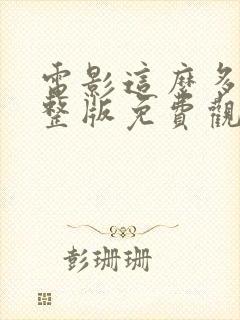 電影這麼多
整版免費觀
彭珊珊